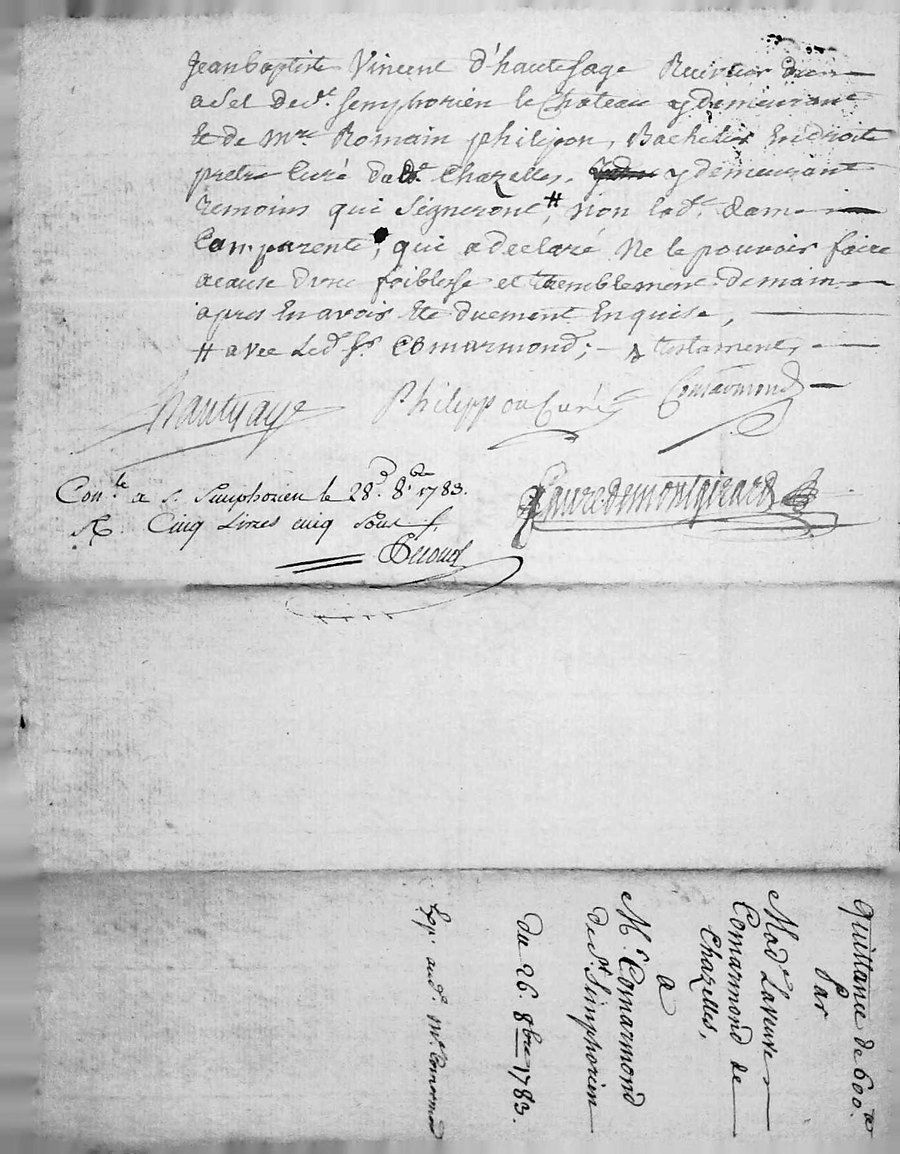 Jeanbaptiste Vincent d'hautesage Receveur du
asel de St. Simphorien le Chateau y demeurant
Et de mre Romain philipon, Bachelier En droit
pretre Curé dud. Chazelles, y demeurant
temoins qui Signeront, # non lad.e dame
Comparente, qui a declaré Ne le pouvoir faire
acause d'une foiblesse et tremblement de main
apres En avoir Eté duement Enquise,
# avec Led. Sr. Comarmond; testament,
hautesage Philippon Curé Comarmond
Con.le a St. Simphorien le 28. 8.bre 1783.
R. Cinq Livres cinq Sous
favre de montgirard
quittance de 600.tt
Par
Mad.e La veuve
Comarmond de
Chazelles,
a
M.r Comarmond
de St. Simphorien
du 26. 8bre 1783.
Exp. aud. Mr. Comarmond